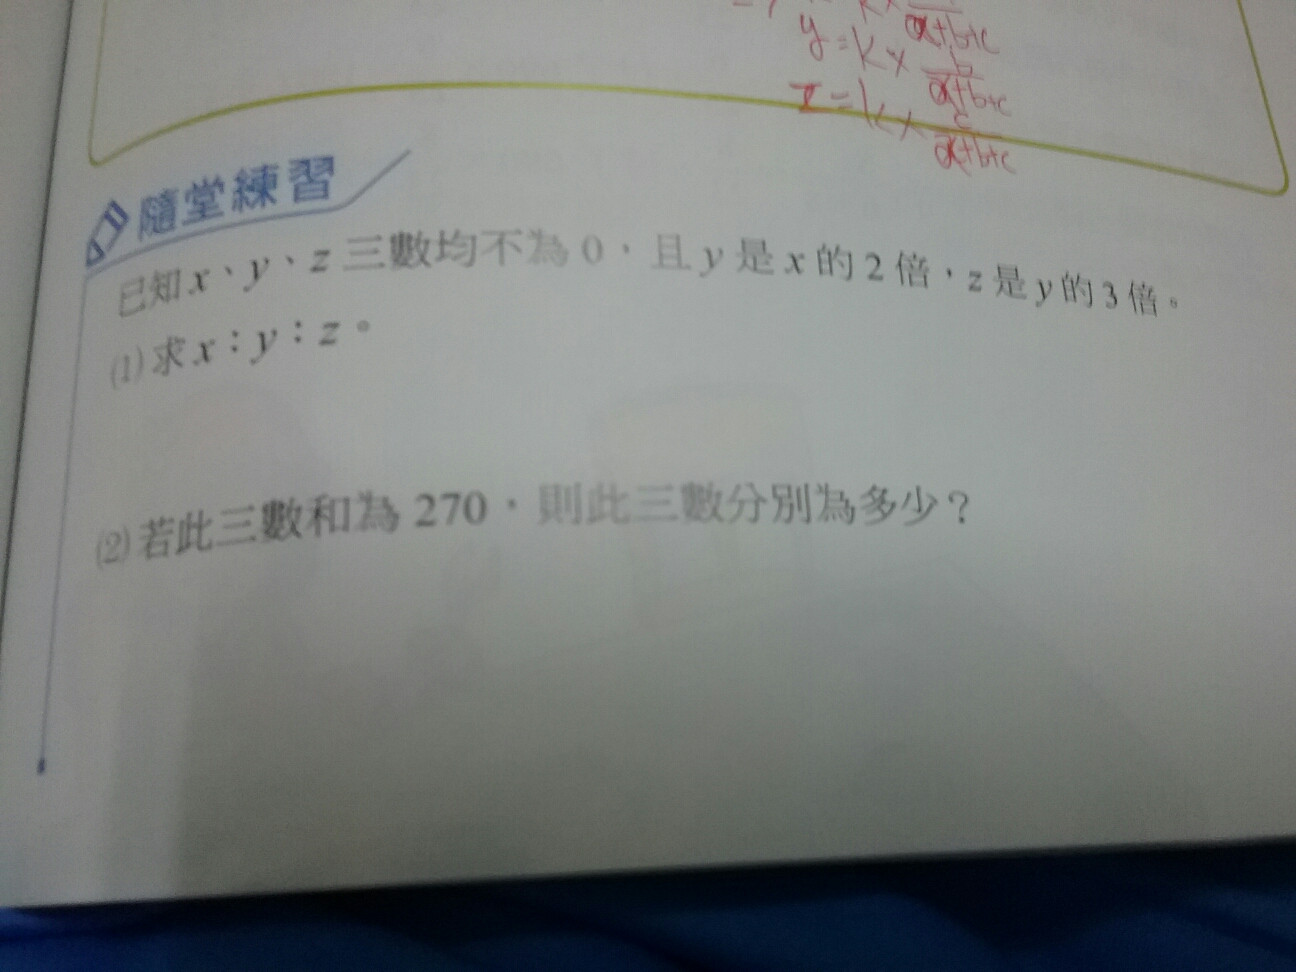 y=k×b/a+b+c
z=k×c/a+b+c
隨堂練習
已知x、y、z三數均不為0，且y是x的2倍，z是y的3倍。
(1)求x：y：z。
(2)若此三數和為270，則此三數分別為多少？